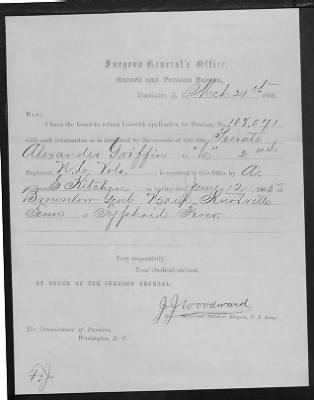 Surgeon General's Office,
Record and Pension Bureau,
Washington, D. C. Mch 21st 186
Sir:
I have the honor to return herewith application for Pension, No. 108,071
with such information as is furnished by the records of this Office. Private
Alexander Griffin "C" 2nd
Regiment, N.C. Vols. is reported to this Office by A.
S. Kitchen as having died June 12, 1865
Brownlow Genl Hosp. Knoxville
Tenn of Typhoid Fever.
Very respectfully,
Your obedient servant,
BY ORDER OF THE SURGEON GENERAL:
J J Woodward
Surgeon, U. S. Army
The Commissioner of Pensions,
Washington, D. C.